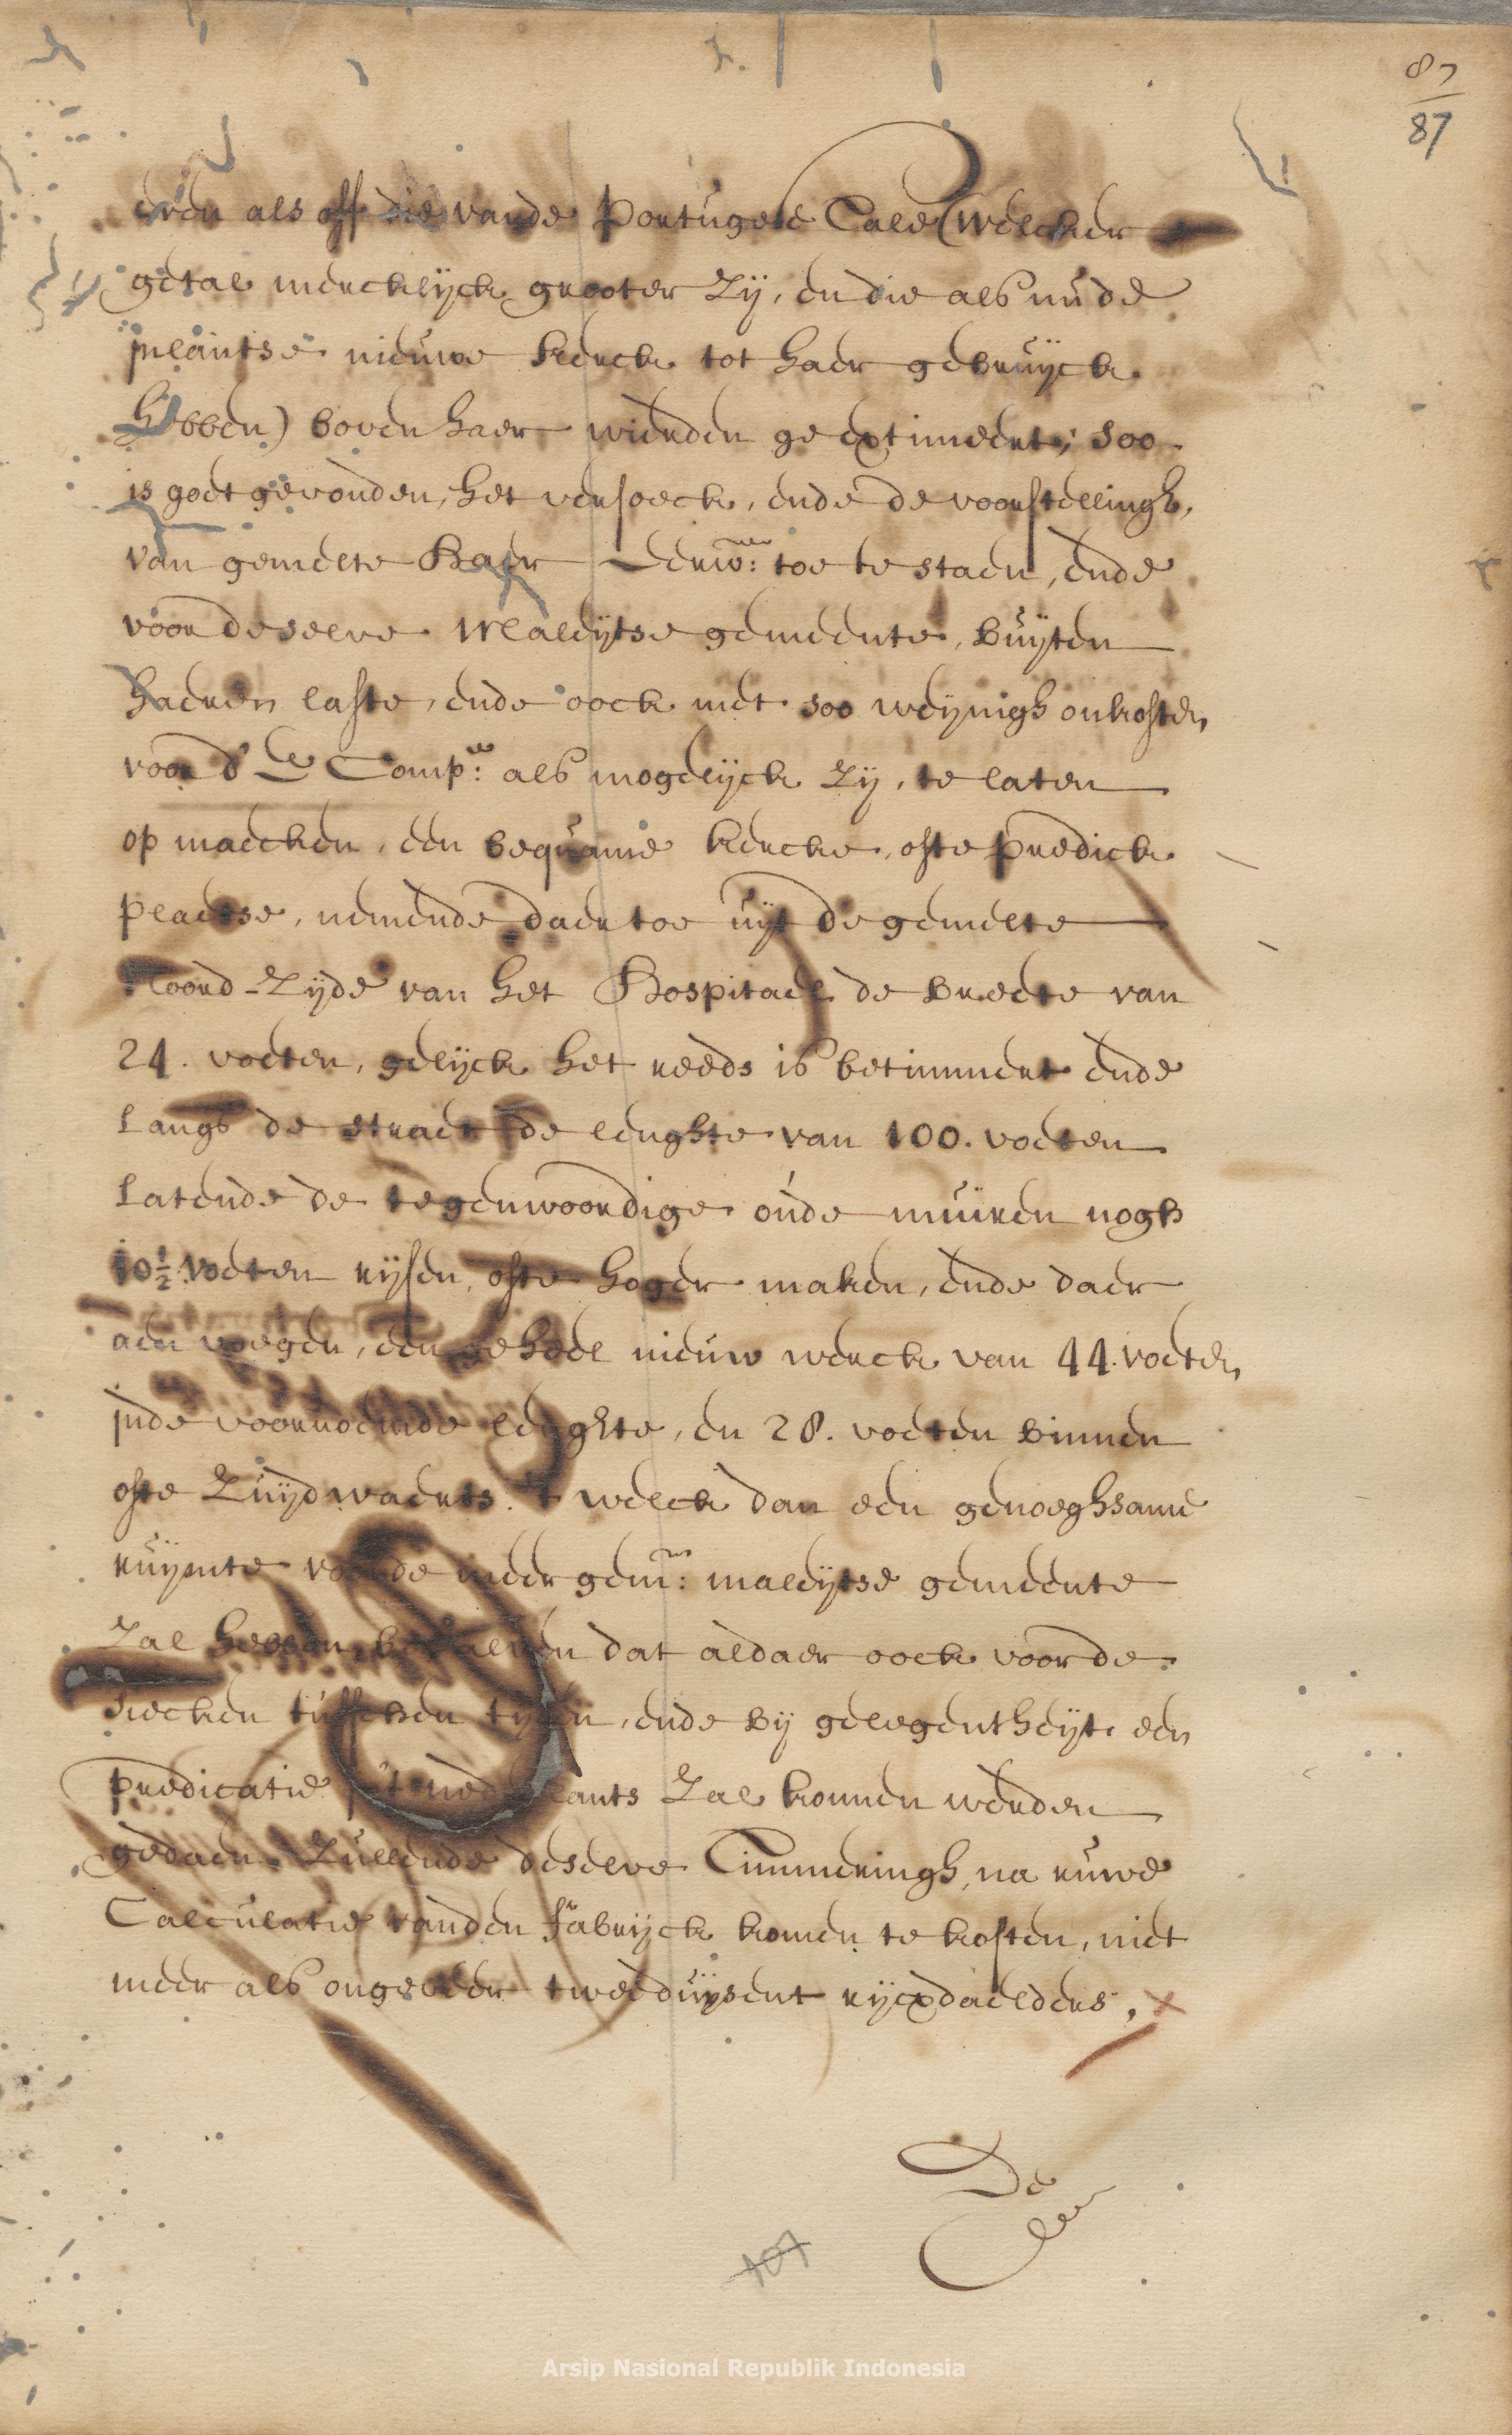 87
87
even als off die vande Portugese Tale (welcker
getal mercklijck grooter zij, en die als nu de
inlantse nieuwe kerck tot haer gebruijck
hebben) boven haer wierden geextimeert; soo
is goet gevonden, het versoeck, ende de voorstellingh,
van gemelte haer Eerw:en toe te staen, ende
voor deselve Maleijtse gemeente, buijten
haeren laste, ende oock met soo weijnigh onkosten
voor d' E Comp:e als mogelijck zij, te laten
op maecken, een bequame kercke, ofte predick
plaetse, nemende daer toe uijt de gemelte
Noord-zijde van het Hospitael de breete van
24. voeten, gelijck het reeds is betimmert ende
Langs de straet de lenghte van 100. voeten
Latende de tegenwoordige oude muiren nogh
10½ voeten rijsen, ofte hoger maken, ende daer
aen voegen, een geheel nieuw werck van 44. voeten
inde voornoemde lenghte, en 28. voeten binnen
ofte Zuijdwaerts. 't welck dan een genoeghsame
ruijmte voor de meergem: maleijtse gemeente
Zal hebben, behalven dat aldaer oock voor de
siecken tusschen tijden, ende bij gelegentheijt een
predicatie in 't nederlants Zal konnen werden
gedaen. Zullende deselve Timmeringh, na ruwe
Calculatie vanden fabrijck komen te kosten, niet
meer als ongeveer tweeduijsent rijcxdaelders.
De
107
Arsip Nasional Republik Indonesia